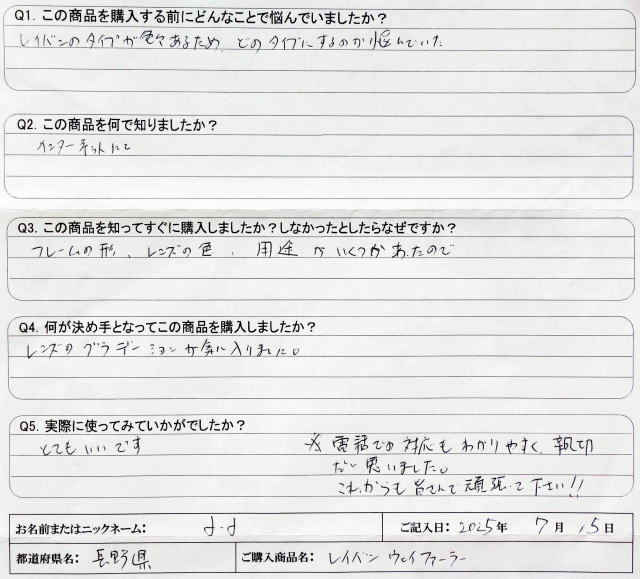 Q1. この商品を購入する前にどんなことで悩んでいましたか？
レイバンのタイプが色々あるため、どのタイプにするのか悩んでいた
Q2. この商品を何で知りましたか？
インターネットにて
Q3. この商品を知ってすぐに購入しましたか？しなかったとしたらなぜですか？
フレームの形、レンズの色、用途がいくつかあったので
Q4. 何が決め手となってこの商品を購入しましたか？
レンズのグラデーションが気に入りました。
Q5. 実際に使ってみていかがでしたか？
とてもいいです
※電話での対応もわかりやすく、親切
だと思いました。
これからも皆さんで頑張って下さい!!
お名前またはニックネーム：
ご記入日：2025年 7月 15日
都道府県名：長野県
ご購入商品名：レイバン ウェイファーラー